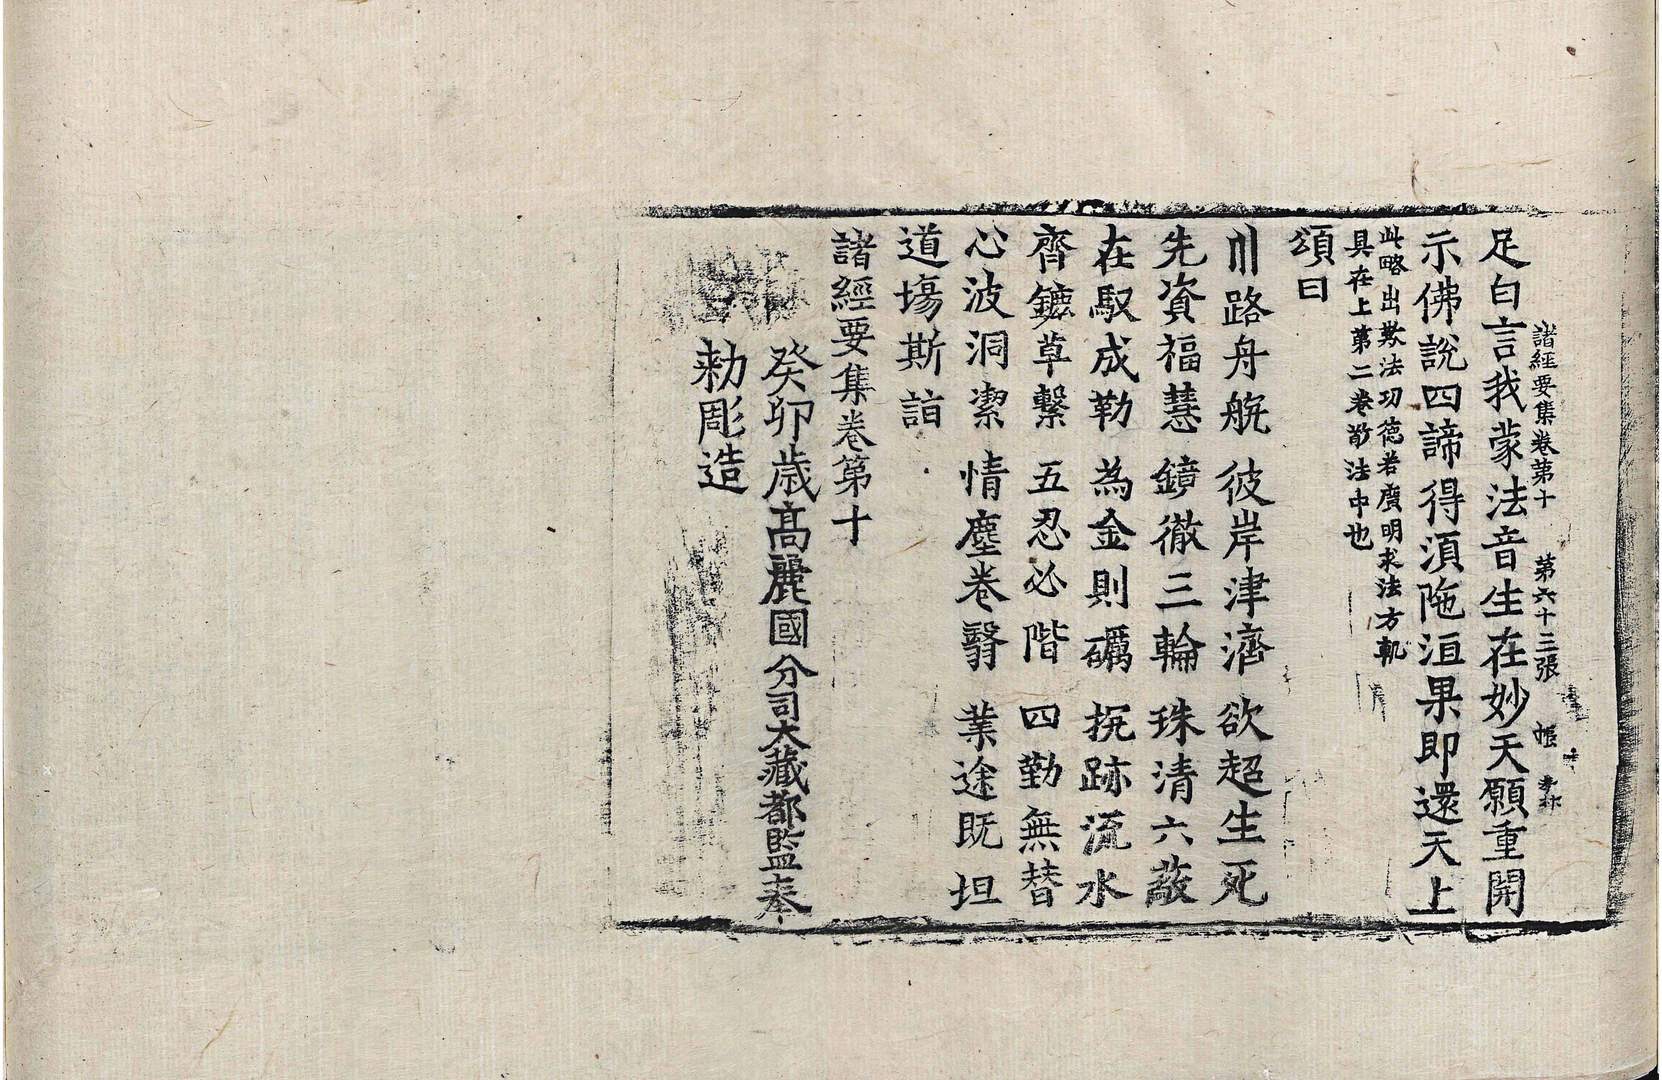 諸經要集卷第十　第六十三張　帳
足白言我蒙法音生在妙天願重開
示佛說四諦得須陁洹果即還天上
此略出數法功德若廣明求法方軌
具在上第二卷敬法中也
頌曰
川路舟航　彼岸津濟　欲超生死
先資福慧　鏡徹三輪　珠清六蔽
在馭成勒　為金則礪　抗跡流水
齊鑣草繫　五忍必階　四勤無替
心波洞潔　情塵卷翳　業途既坦
道場斯詣
諸經要集卷第十
癸卯歳高麗國分司大藏都監奉
勅彫造